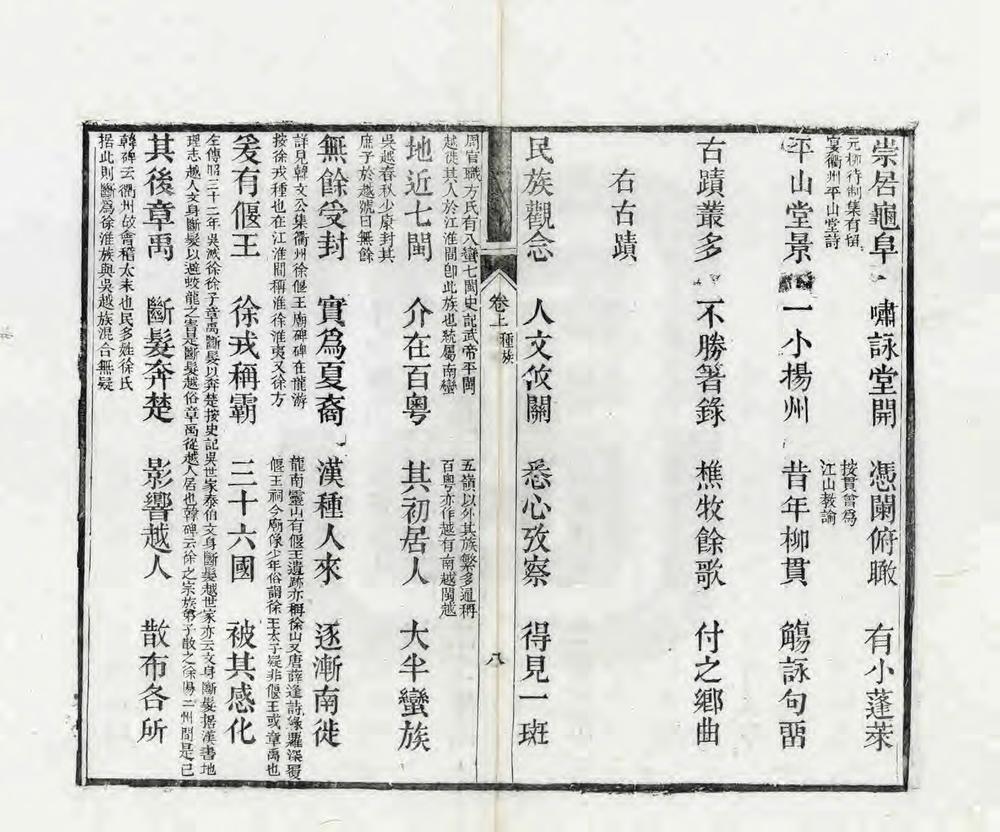 崇居龜阜 嘯詠堂開 憑闌俯瞰 有小蓬萊
元柳待制集有留
宴衢州平山堂詩
按貫曾為
江山教諭
平山堂景 一小揚州 昔年柳貫 觴詠句畱
古蹟叢多 不勝箸錄 樵牧餘歌 付之鄉曲
右古蹟
民族觀念 人文攸關 悉心攷察 得見一斑
卷上 種族 八
周官職方氏有八蠻七閩史記武帝平閩
越徙其人於江淮間卽此族也統屬南蠻
五嶺以外其族繁多通稱
百粤亦作越有南越閩越
地近七閩 介在百粤 其初居人 大半蠻族
吳越春秋少康封其
庶子於越號曰無餘
無餘受封 實爲夏裔 漢種人來 逐漸南徙
詳見韓文公集衢州徐偃王廟碑碑在龍游
按徐戎種也在江淮間稱淮徐淮夷又徐方
龍南靈山有偃王遺跡亦稱徐山又唐薛逢詩緣蘿深覆
偃王祠今廟像少年俗謂徐王太子疑非偃王或章禹也
爰有偃王 徐戎稱霸 三十六國 被其感化
左傳昭三十二年吳滅徐徐子章禹斷髮以奔楚按史記吳世家泰伯文身斷髮越世家亦云文身斷髮据漢書地
理志越人文身斷髮以避蛟龍之害是斷髮越俗章禹從越人居也韓碑云徐之宗族弟子散之徐陽二州間是已
其後章禹 斷髮奔楚 影響越人 散布各所
韓碑云衢州故會稽太末也民多姓徐氏
据此則斷爲徐淮族與吳越族混合無疑